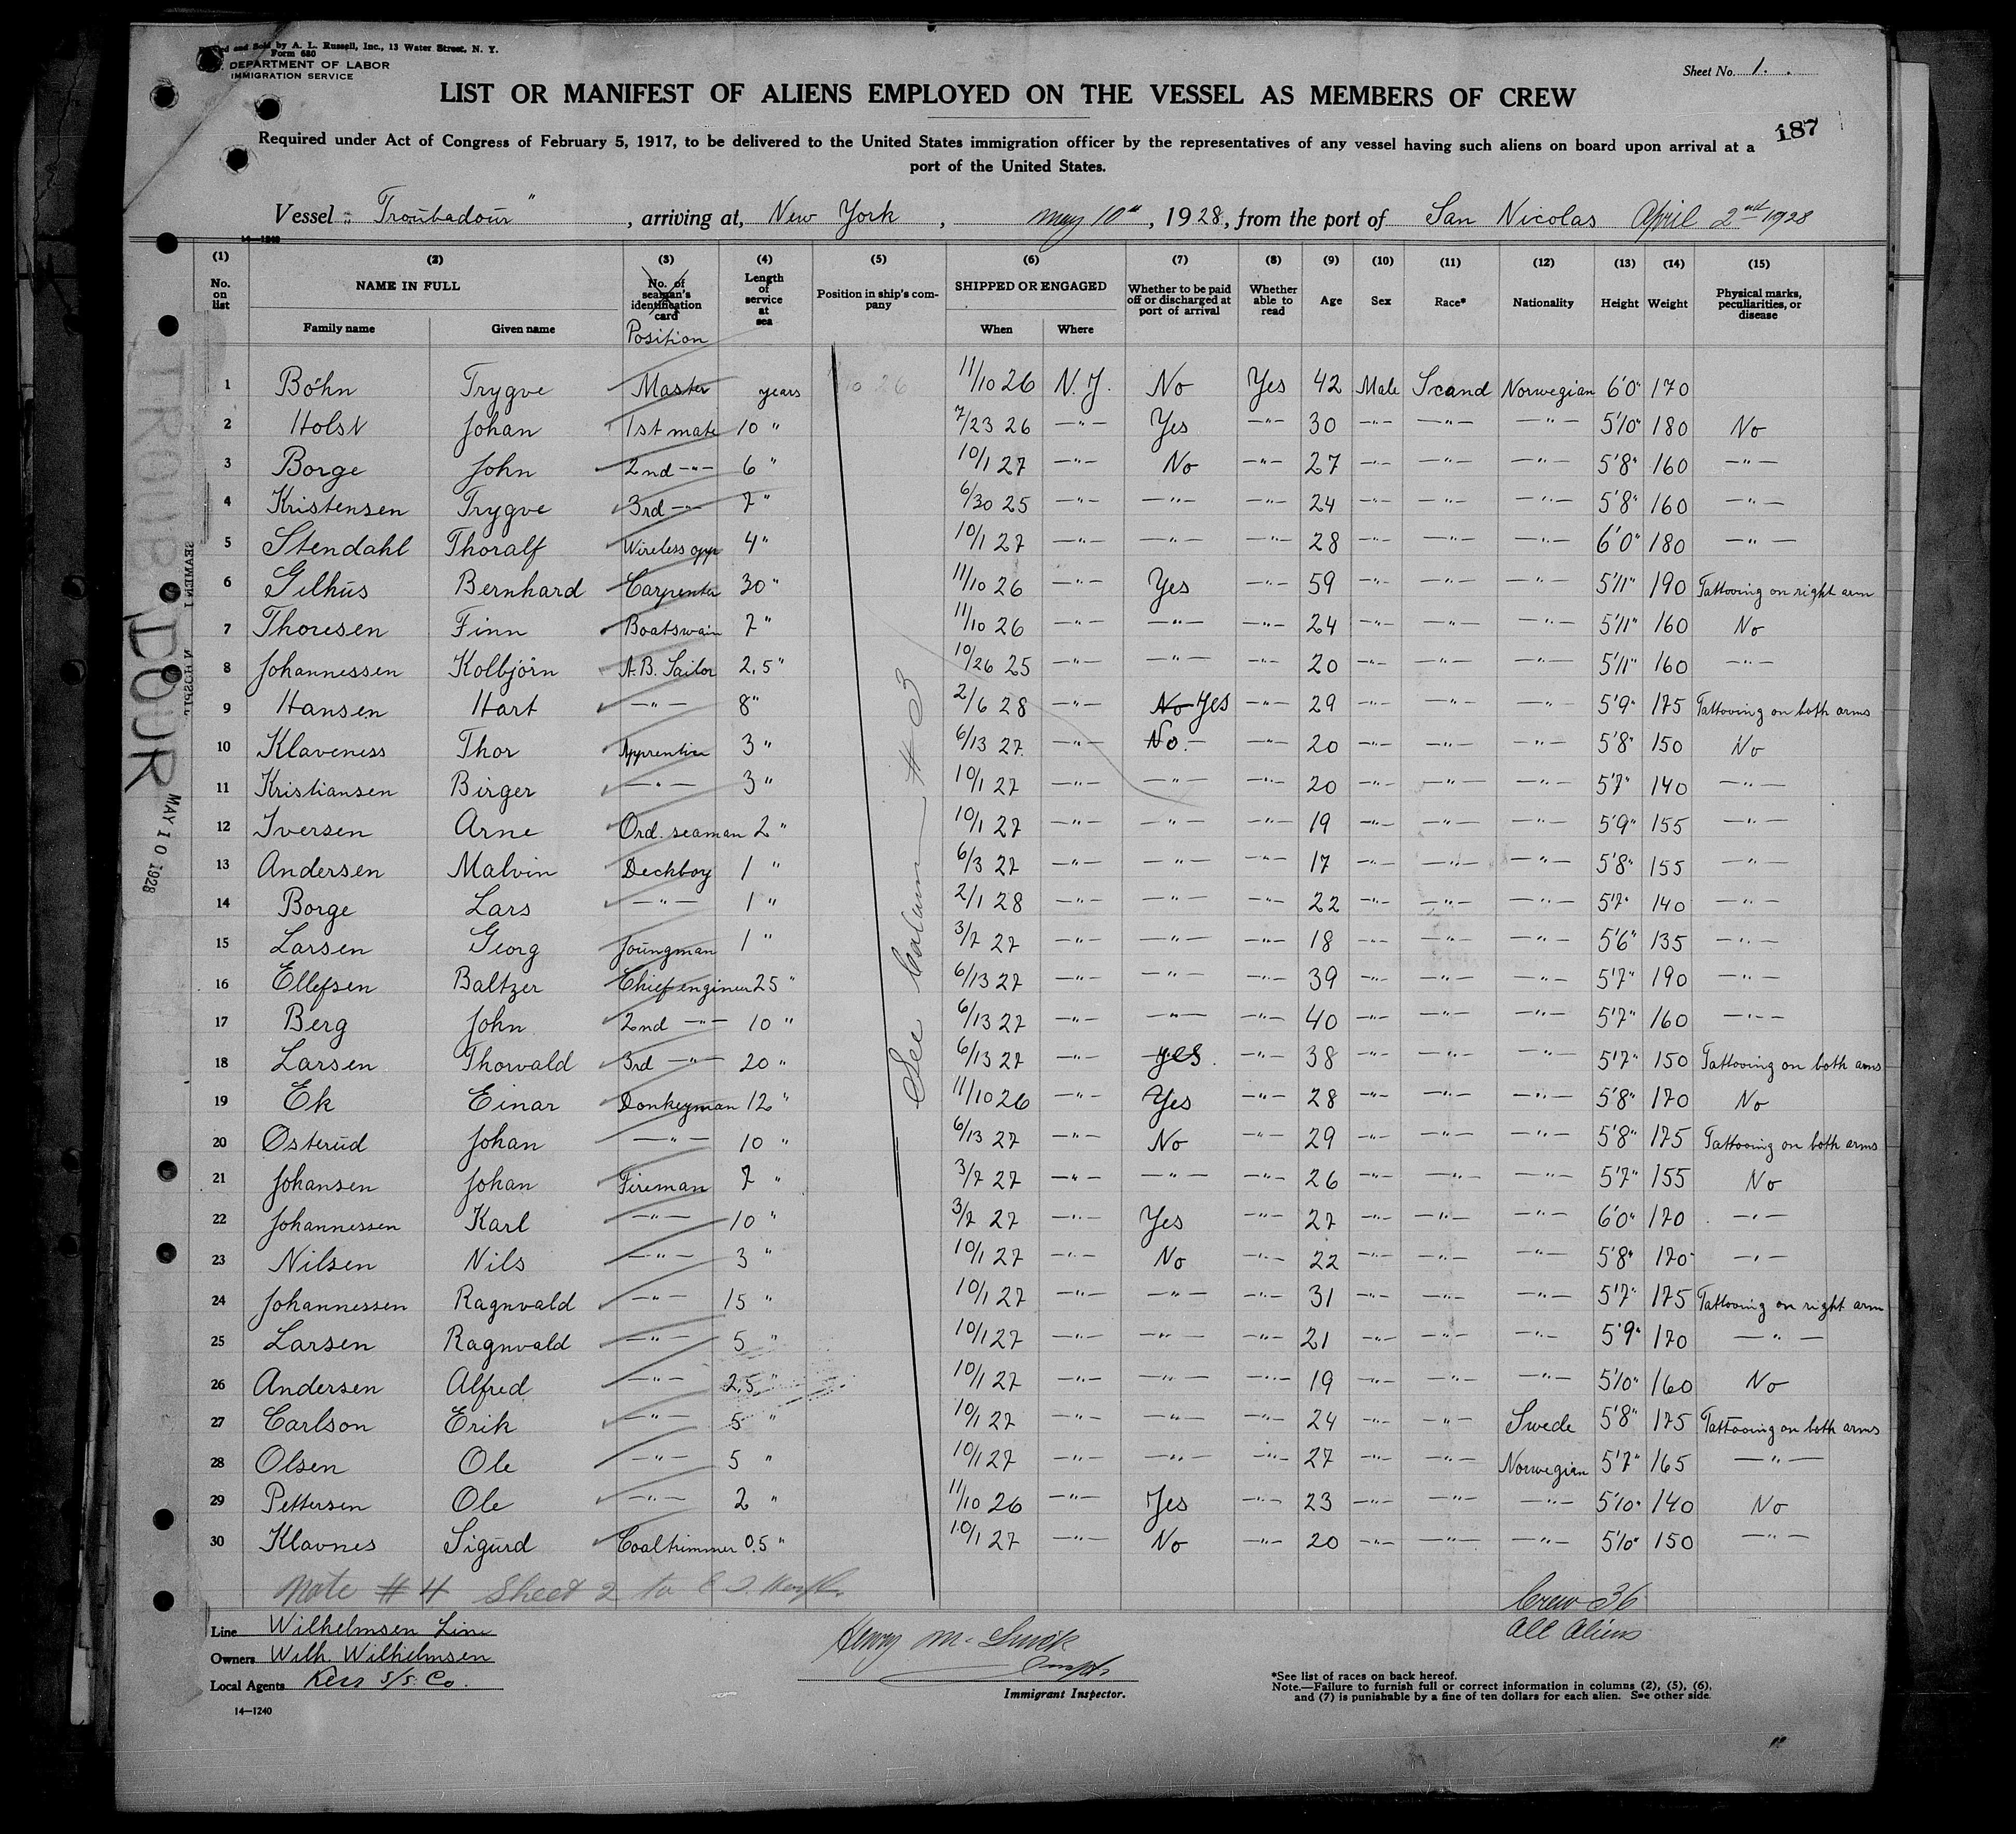 Printed and Sold by A. L. Russell, Inc., 13 Water Street, N. Y.
Form 680
DEPARTMENT OF LABOR
IMMIGRATION SERVICE
Sheet No. 1.
LIST OR MANIFEST OF ALIENS EMPLOYED ON THE VESSEL AS MEMBERS OF CREW
187
Required under Act of Congress of February 5, 1917, to be delivered to the United States immigration officer by the representatives of any vessel having such aliens on board upon arrival at a
port of the United States.
Vessel "Troubadour", arriving at, New York, May 10th, 1928, from the port of San Nicolas April 2nd 1928
14—1240
(1) (2) (3) (4) (5) (6) (7) (8) (9) (10) (11) (12) (13) (14) (15)
No. on list NAME IN FULL Family name Given name No. of seaman's identification card Position Length of service at sea Position in ship's company SHIPPED OR ENGAGED When Where Whether to be paid off or discharged at port of arrival Whether able to read Age Sex Race* Nationality Height Weight Physical marks, peculiarities, or disease
1 Böhn Trygve Master years 11/10 26 N.Y. No Yes 42 Male Scand Norwegian 6'0" 170
2 Holst Johan 1st mate 10 " 7/23 26 —"— Yes —"— 30 —"— —"— —"— 5'10" 180 No
3 Borge John 2nd —"— 6 " 10/1 27 —"— No —"— 27 —"— —"— —"— 5'8" 160 —"—
4 Kristensen Trygve 3rd —"— 7 " 6/30 25 —"— —"— —"— 24 —"— —"— —"— 5'8" 160 —"—
5 Stendahl Thoralf Wireless opp 4 " 10/1 27 —"— —"— —"— 28 —"— —"— —"— 6'0" 180 —"—
6 Gilhus Bernhard Carpenter 30 " 11/10 26 —"— Yes —"— 59 —"— —"— —"— 5'11" 190 Tattooing on right arm
7 Thoresen Finn Boatswain 7 " 11/10 26 —"— —"— —"— 24 —"— —"— —"— 5'11" 160 No
8 Johannessen Kolbjörn A.B. Sailor 2,5 " 10/26 25 —"— —"— —"— 20 —"— —"— —"— 5'11" 160 —"—
9 Hansen Hart —"— 8 " 2/6 28 —"— No Yes —"— 29 —"— —"— —"— 5'9" 175 Tattooing on both arms
10 Klaveness Thor Apprentice 3 " 6/13 27 —"— No. —"— 20 —"— —"— —"— 5'8" 150 No
11 Kristiansen Birger —"— 3 " 10/1 27 —"— —"— —"— 20 —"— —"— —"— 5'7" 140 —"—
12 Iversen Arne Ord. seaman 2 " 10/1 27 —"— —"— —"— 19 —"— —"— —"— 5'9" 155 —"—
13 Andersen Malvin Deckboy 1 " 6/3 27 —"— —"— —"— 17 —"— —"— —"— 5'8" 155 —"—
14 Borge Lars —"— 1 " 2/1 28 —"— —"— —"— 22 —"— —"— —"— 5'7" 140 —"—
15 Larsen Georg Joungman 1 " 3/7 27 —"— —"— —"— 18 —"— —"— —"— 5'6" 135 —"—
16 Ellefsen Baltzer Chief enginer 25 " 6/13 27 —"— —"— —"— 39 —"— —"— —"— 5'7" 190 —"—
17 Berg John 2nd —"— 10 " 6/13 27 —"— —"— —"— 40 —"— —"— —"— 5'7" 160 —"—
18 Larsen Thorvald 3rd —"— 20 " 6/13 27 —"— yes. —"— 38 —"— —"— —"— 5'7" 150 Tattooing on both arms
19 Ek Einar Donkeyman 12 " 11/10 26 —"— Yes —"— 28 —"— —"— —"— 5'8" 170 No
20 Osterud Johan —"— 10 " 6/13 27 —"— No —"— 29 —"— —"— —"— 5'8" 175 Tattooing on both arms
21 Johansen Johan Fireman 7 " 3/7 27 —"— —"— —"— 26 —"— —"— —"— 5'7" 155 No
22 Johannessen Karl —"— 10 " 3/7 27 —"— Yes —"— 27 —"— —"— —"— 6'0" 170 —"—
23 Nilsen Nils —"— 3 " 10/1 27 —"— No —"— 22 —"— —"— —"— 5'8" 170 —"—
24 Johannessen Ragnvald —"— 15 " 10/1 27 —"— —"— —"— 31 —"— —"— —"— 5'7" 175 Tattooing on right arm
25 Larsen Ragnvald —"— 5 " 10/1 27 —"— —"— —"— 21 —"— —"— —"— 5'9" 170 —"—
26 Andersen Alfred —"— 2,5 " 10/1 27 —"— —"— —"— 19 —"— —"— —"— 5'10" 160 No
27 Carlson Erik —"— 5 " 10/1 27 —"— —"— —"— 24 —"— —"— Swede 5'8" 175 Tattooing on both arms
28 Olsen Ole —"— 5 " 10/1 27 —"— —"— —"— 27 —"— —"— Norwegian 5'7" 165 —"—
29 Pettersen Ole —"— 2 " 11/10 26 —"— Yes —"— 23 —"— —"— —"— 5'10" 140 No
30 Klavnes Sigurd Coaltrimmer 0.5 " 10/1 27 —"— No —"— 20 —"— —"— —"— 5'10" 150 —"—
See Column #3
Note #4 Sheet 2 to
Crew 36
All Aliens
Line Wilhelmsen Line
Owners Wilh. Wilhelmsen
Local Agents Kerr S/S. Co.
14—1240
Henry M.
Immigrant Inspector.
*See list of races on back hereof.
Note.—Failure to furnish full or correct information in columns (2), (5), (6),
and (7) is punishable by a fine of ten dollars for each alien. See other side.
TROUBADOUR
MAY 10 1928